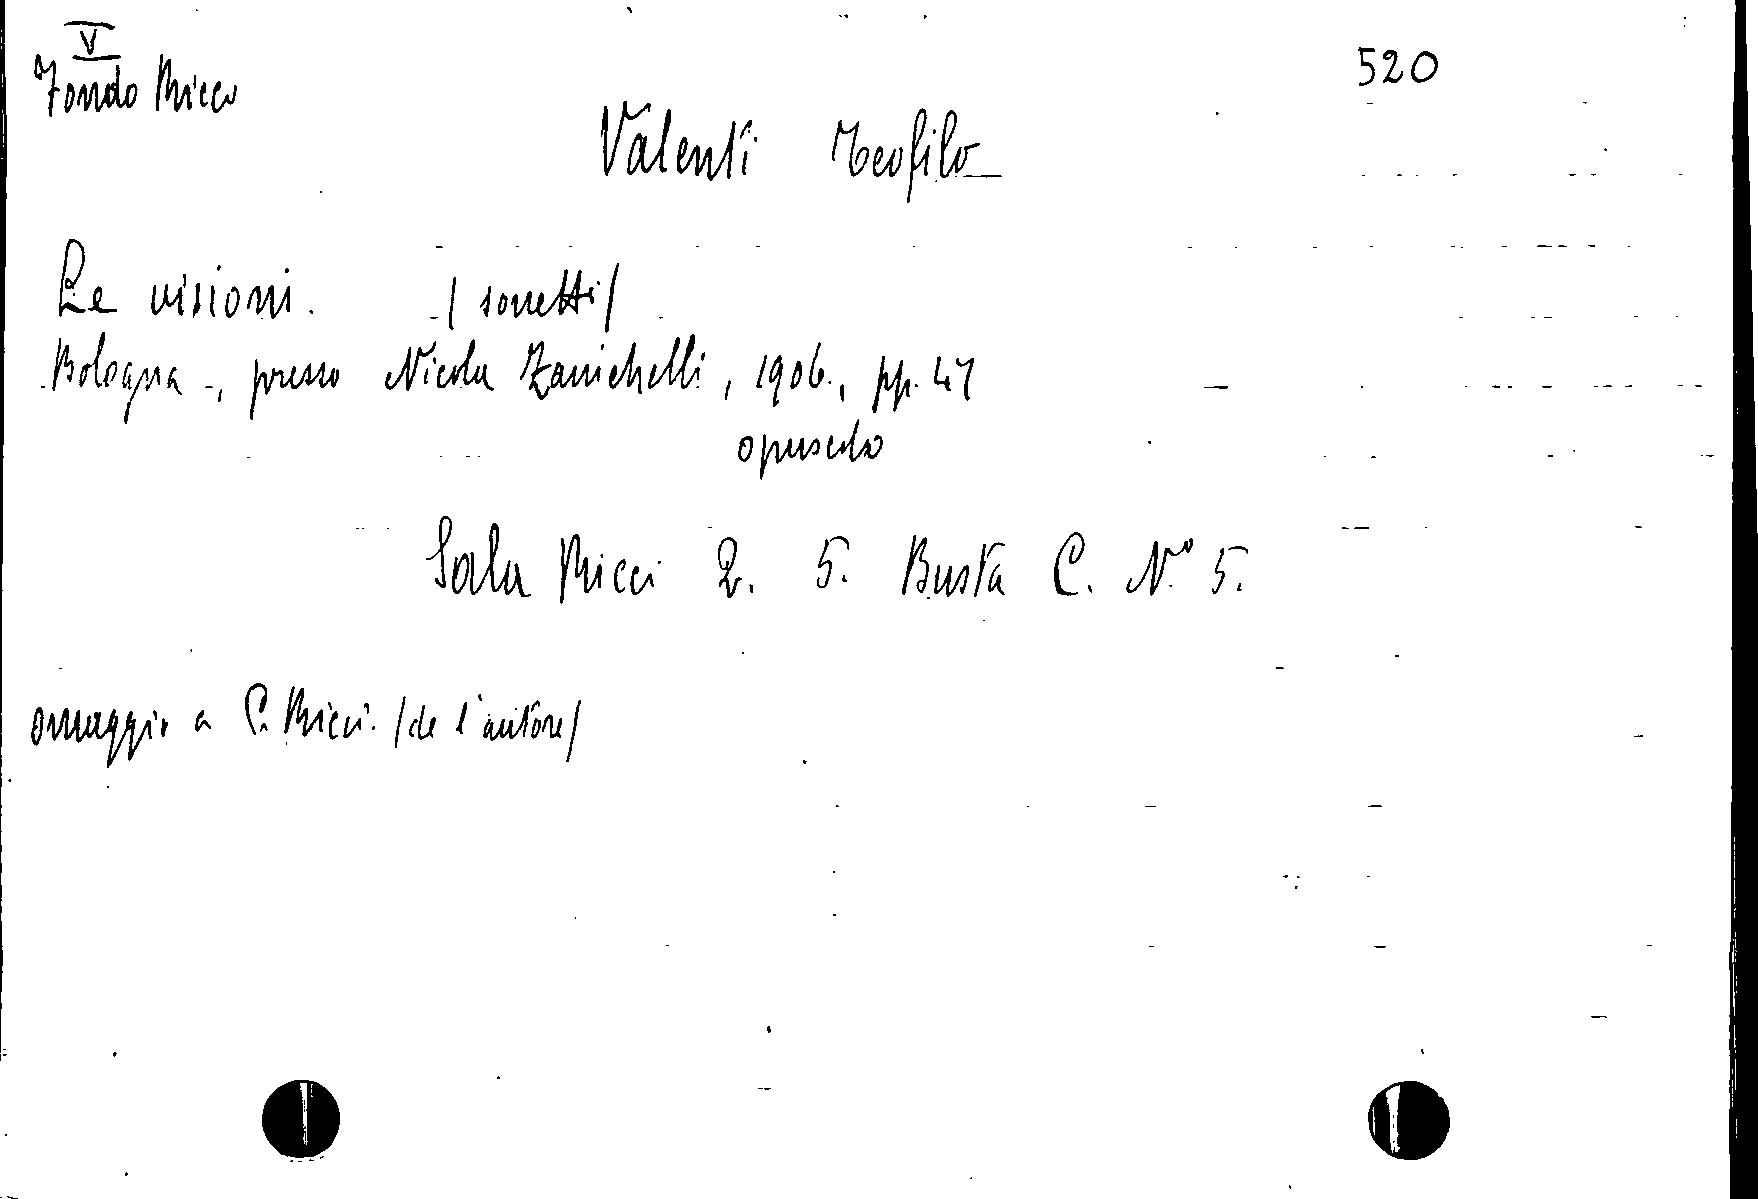 V
Fondo Ricci
520
Valenti Teofilo
Le visioni. (sonetti)
Bologna, presso Nicola Zanichelli, 1906., pp. 47
opuscolo
Sala Ricci 2. 5. Busta C. N° 5.
omaggio a C. Ricci. (de l'autore)